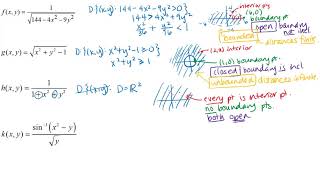 f(x,y) = 1/√(144-4x²-9y²) D:{(x,y): 144-4x²-9y²>0}
144>4x²+9y²
x²/36 + y²/16 < 1
interior pts
(6,0)
boundary pt.
open boundary not incl
bounded distances finite
g(x,y) = √(x²+y²-1) D:{(x,y): x²+y²-1≥0}
x²+y²≥1
interior
(1,0) boundary pt.
closed boundary is incl
unbounded distances infinite.
h(x,y) = 1/(1+x²+y²) D:{(x,y): D=ℝ²
every pt is interior pt.
no boundary pts.
both open
k(x,y) = sin⁻¹(x²-y)/√y